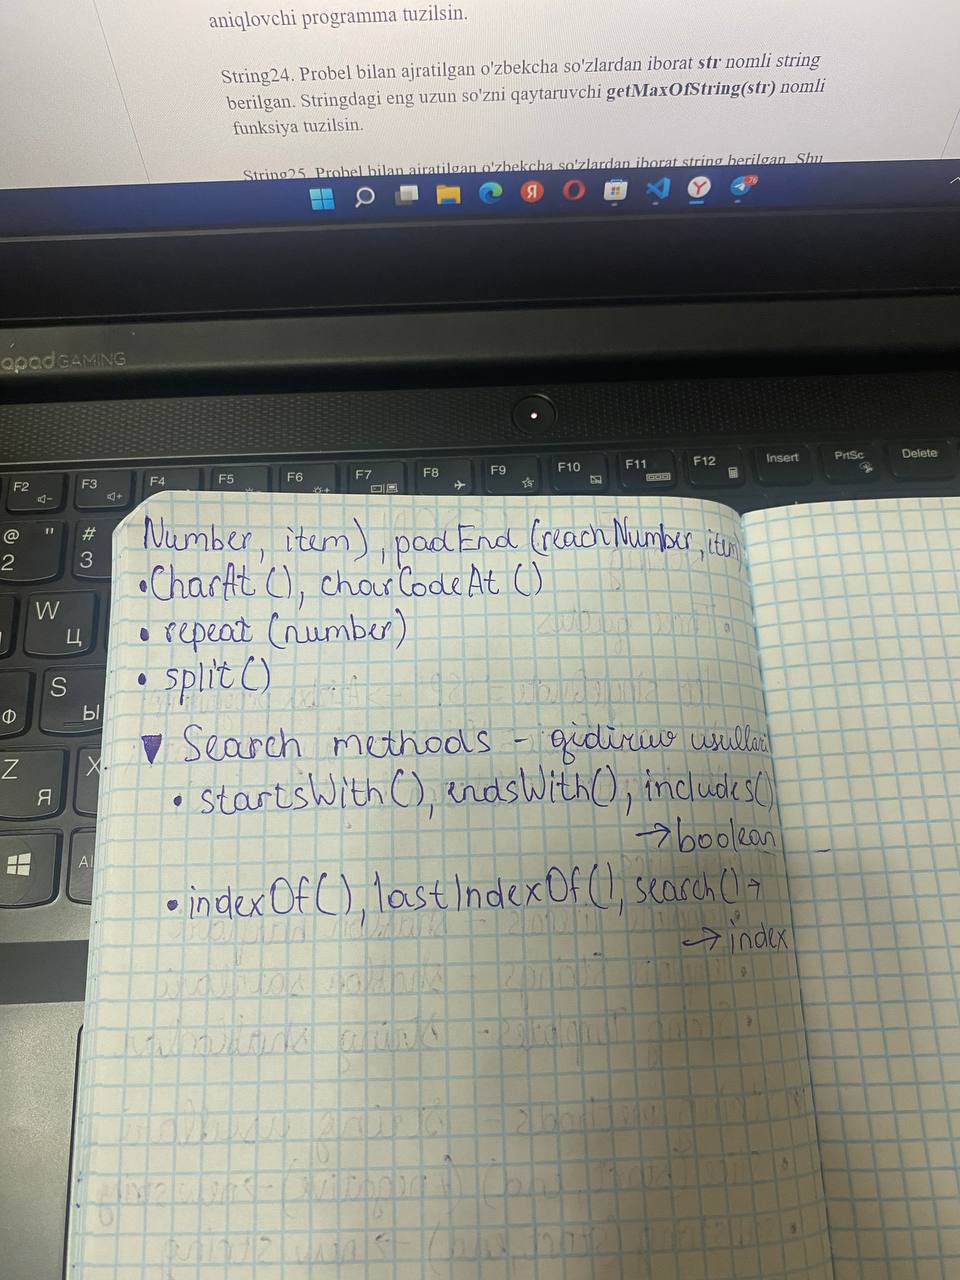 aniqlovchi programma tuzilsin.
String24. Probel bilan ajratilgan o'zbekcha so'zlardan iborat str nomli string
berilgan. Stringdagi eng uzun so'zni qaytaruvchi getMaxOfString(str) nomli
funksiya tuzilsin.
String25. Probel bilan ajratilgan o'zbekcha so'zlardan iborat string berilgan. Shu
76
apad GAMING
F2 F3 F4 F5 F6 F7 F8 F9 F10 F11 F12 Insert PrtSc Delete
@ " # 
2 3
W Ц
S Ы Ф
Z Я X
Al
Number, item), padEnd (reachNumber, item)
• CharAt (), charCodeAt ()
• repeat (number)
• split ()
▼ Search methods - qidiruv usullari
• startsWith(), endsWith(), includes()
→ boolean
• indexOf(), lastIndexOf(), search() →
→ index